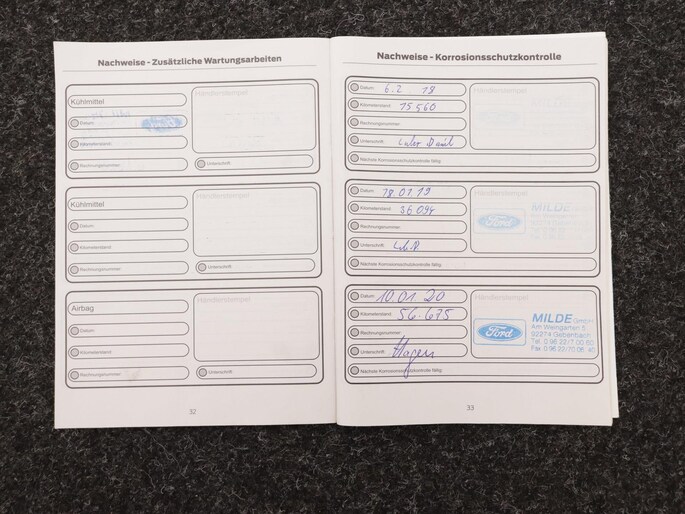 Nachweise - Zusätzliche Wartungsarbeiten
Kühlmittel
Händlerstempel
Datum:
Ford
Kilometerstand:
Rechnungsnummer:
Unterschrift:
Kühlmittel
Händlerstempel
Datum:
Kilometerstand:
Rechnungsnummer:
Unterschrift:
Airbag
Händlerstempel
Datum:
Kilometerstand:
Rechnungsnummer:
Unterschrift:
32
Nachweise - Korrosionsschutzkontrolle
Datum: 6.2 18
Händlerstempel
Kilometerstand: 15 560
Rechnungsnummer:
Unterschrift:
Nächste Korrosionsschutzkontrolle fällig:
Datum: 18.01.19
Händlerstempel
Kilometerstand: 36 094
Ford
MILDE
Rechnungsnummer:
Unterschrift:
Nächste Korrosionsschutzkontrolle fällig:
Datum: 10.01.20
Händlerstempel
Kilometerstand: 56-675
Rechnungsnummer:
Unterschrift: Hagen
Ford
MILDE GmbH
Am Weingarten 5
92274 Gebenbach
Tel. 0 96 22/7 00 60
Fax 0 96 22/70 06 40
Nächste Korrosionsschutzkontrolle fällig:
33